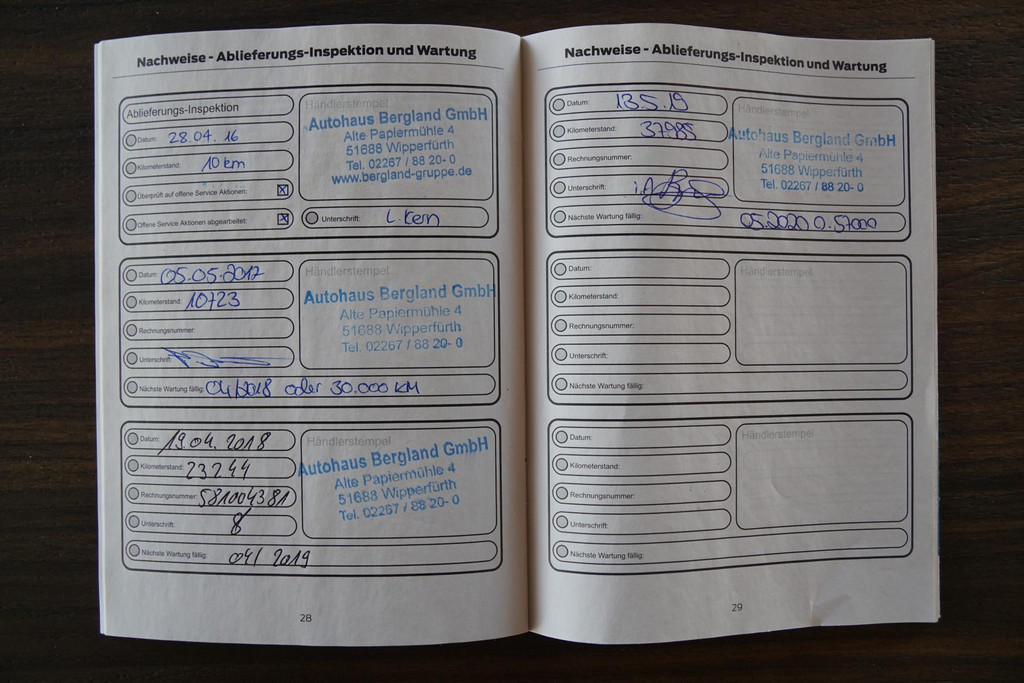 Nachweise - Ablieferungs-Inspektion und Wartung
Ablieferungs-Inspektion
Datum: 28.04.16
Kilometerstand: 10 km
Überprüft auf offene Service Aktionen: X
Offene Service Aktionen abgearbeitet: X
Händlerstempel
Autohaus Bergland GmbH
Alte Papiermühle 4
51688 Wipperfürth
Tel. 02267 / 88 20- 0
www.bergland-gruppe.de
Unterschrift: L. Kern
Datum: 05.05.2017
Kilometerstand: 10723
Rechnungsnummer:
Unterschrift:
Händlerstempel
Autohaus Bergland GmbH
Alte Papiermühle 4
51688 Wipperfürth
Tel. 02267 / 88 20- 0
Nächste Wartung fällig: 04/2018 oder 30.000 KM
Datum: 19.04.2018
Kilometerstand: 23244
Rechnungsnummer: 581004381
Unterschrift:
Händlerstempel
Autohaus Bergland GmbH
Alte Papiermühle 4
51688 Wipperfürth
Tel. 02267 / 88 20- 0
Nächste Wartung fällig: 04/2019
28
Nachweise - Ablieferungs-Inspektion und Wartung
Datum: 13.5.19
Kilometerstand: 37985
Rechnungsnummer:
Unterschrift: i.A.
Händlerstempel
Autohaus Bergland GmbH
Alte Papiermühle 4
51688 Wipperfürth
Tel. 02267 / 88 20- 0
Nächste Wartung fällig: 05.2020 o. 57000
Datum:
Kilometerstand:
Rechnungsnummer:
Unterschrift:
Händlerstempel
Nächste Wartung fällig:
Datum:
Kilometerstand:
Rechnungsnummer:
Unterschrift:
Händlerstempel
Nächste Wartung fällig:
29